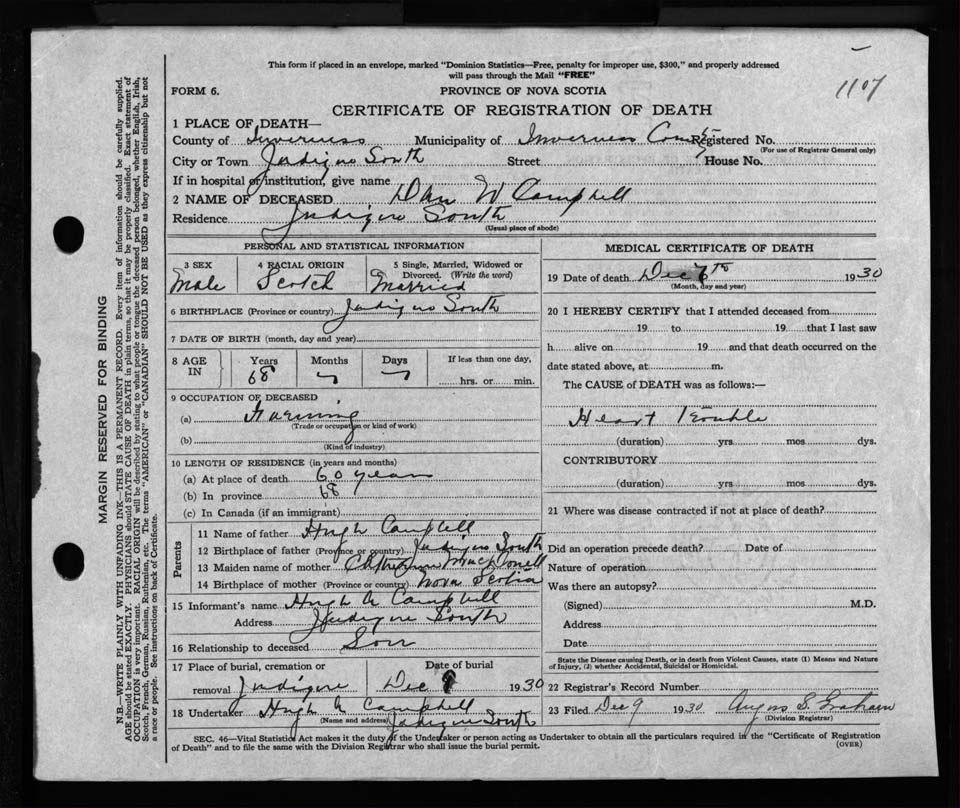 This form if placed in an envelope, marked "Dominion Statistics—Free, penalty for improper use, $300," and properly addressed
will pass through the Mail "FREE"
1107
FORM 6. PROVINCE OF NOVA SCOTIA
CERTIFICATE OF REGISTRATION OF DEATH
1 PLACE OF DEATH—
County of Inverness Municipality of Inverness County Registered No.
(For use of Registrar General only)
City or Town Judique South Street House No.
If in hospital or institution, give name
2 NAME OF DECEASED Dan W Campbell
Residence Judique South
(Usual place of abode)
PERSONAL AND STATISTICAL INFORMATION
3 SEX 4 RACIAL ORIGIN 5 Single, Married, Widowed or
Divorced. (Write the word)
Male Scotch Married
6 BIRTHPLACE (Province or country) Judique South
7 DATE OF BIRTH (month, day and year)
8 AGE IN Years Months Days If less than one day,
68 7 7 hrs. or min.
9 OCCUPATION OF DECEASED
(a) Farming
(Trade or occupation or kind of work)
(b)
(Kind of industry)
10 LENGTH OF RESIDENCE (in years and months)
(a) At place of death 60 years
(b) In province 68
(c) In Canada (if an immigrant)
Parents
11 Name of father Hugh Campbell
12 Birthplace of father (Province or country) Judique South
13 Maiden name of mother
14 Birthplace of mother (Province or country) Nova Scotia
15 Informant's name Hugh A Campbell
Address Judique South
16 Relationship to deceased Son
17 Place of burial, cremation or Date of burial
removal Judique Dec 9 1930
18 Undertaker Hugh A Campbell
(Name and address) Judique South
MEDICAL CERTIFICATE OF DEATH
19 Date of death Dec 7th 1930
(Month, day and year)
20 I HEREBY CERTIFY that I attended deceased from
19 to 19 that I last saw
h alive on 19 and that death occurred on the
date stated above, at m.
The CAUSE of DEATH was as follows:—
Heart Trouble
(duration) yrs mos dys.
CONTRIBUTORY
(duration) yrs mos dys.
21 Where was disease contracted if not at place of death?
Did an operation precede death? Date of
Nature of operation
Was there an autopsy?
(Signed) M.D.
Address
Date
State the Disease causing Death, or in death from Violent Causes, state (1) Means and Nature
of Injury, (2) whether Accidental, Suicidal or Homicidal.
22 Registrar's Record Number
23 Filed Dec 9 1930 Angus S. Graham
(Division Registrar)
SEC. 46—Vital Statistics Act makes it the duty of the Undertaker or person acting as Undertaker to obtain all the particulars required in the "Certificate of Registration
of Death" and to file the same with the Division Registrar who shall issue the burial permit. (OVER)
MARGIN RESERVED FOR BINDING
N.B.—WRITE PLAINLY WITH UNFADING INK—THIS IS A PERMANENT RECORD. Every item of information should be carefully supplied.
AGE should be stated EXACTLY. PHYSICIANS should STATE CAUSE OF DEATH in plain terms, so that it may be properly classified. Exact statement of
OCCUPATION is very important. RACIAL ORIGIN will be described by stating to what people or tongue the deceased person belonged, whether English, Irish,
Scotch, French, German, Russian, Ruthenian, etc. The terms "AMERICAN" or "CANADIAN" SHOULD NOT BE USED as they express citizenship but not
a race or people. See instructions on back of Certificate.